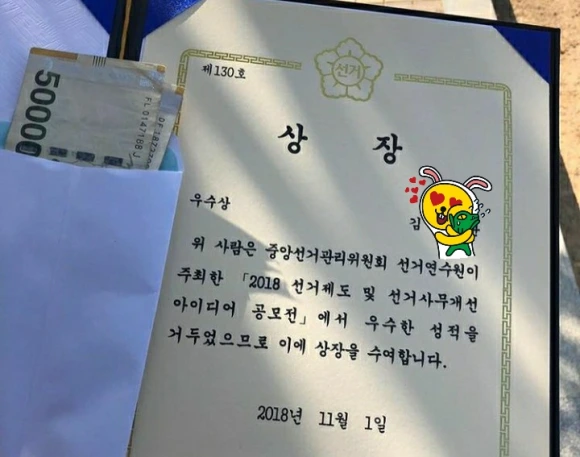 선거
제130호
상 장
우수상
김
위 사람은 중앙선거관리위원회 선거연수원이
주최한 「2018 선거제도 및 선거사무개선
아이디어 공모전」에서 우수한 성적을
거두었으므로 이에 상장을 수여합니다.
2018년 11월 1일
50000